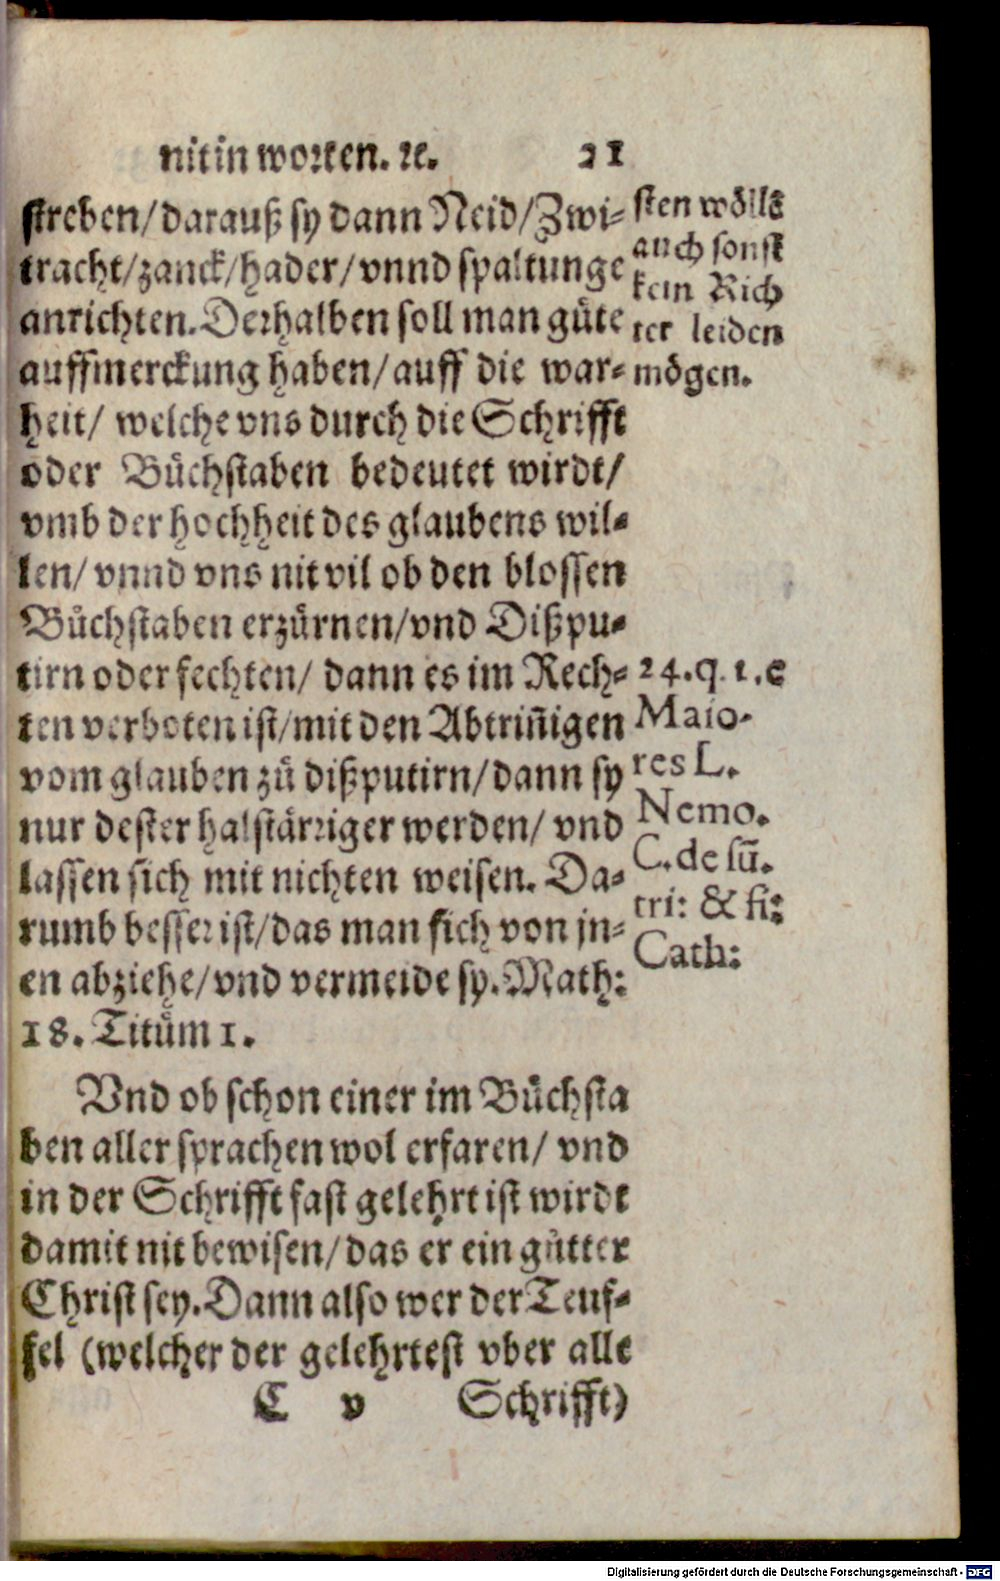 nit in worten. ꝛc. 21
streben/ darauß sy dann Neid/ Zwi⸗
tracht/ zanck/ hader/ vnnd spaltunge
anrichten. Derhalben soll man gůte
auffmerckung haben/ auff die war⸗
heit/ welche vns durch die Schrifft
oder Bůchstaben bedeutet wirdt/
vmb der hochheit des glaubens wil⸗
len/ vnnd vns nit vil ob den blossen
Bůchstaben erzürnen/ vnd Dißpu⸗
tirn oder fechten/ dann es im Rech⸗
ten verboten ist/ mit den Abtriñigen
vom glauben zů dißputirn/ dann sy
nur dester halstärriger werden/ vnd
lassen sich mit nichten weisen. Da⸗
rumb besser ist/ das man sich von jn⸗
en abziehe/ vnd vermeide sy. Math:
18. Titům 1.
Vnd ob schon einer im Bůchsta
ben aller sprachen wol erfaren/ vnd
in der Schrifft fast gelehrt ist wirdt
damit nit bewisen/ das er ein gůtter
Christ sey. Dann also wer der Teuf⸗
fel (welcher der gelehrtest vber alle
C v Schrifft)
sten wöllē
auch sonst
kein Rich
ter leiden
mögen.
24. q. 1. c
Maio-
res L.
Nemo.
C. de sū.
tri: & fi:
Cath:
Digitalisierung gefördert durch die Deutsche Forschungsgemeinschaft - DFG